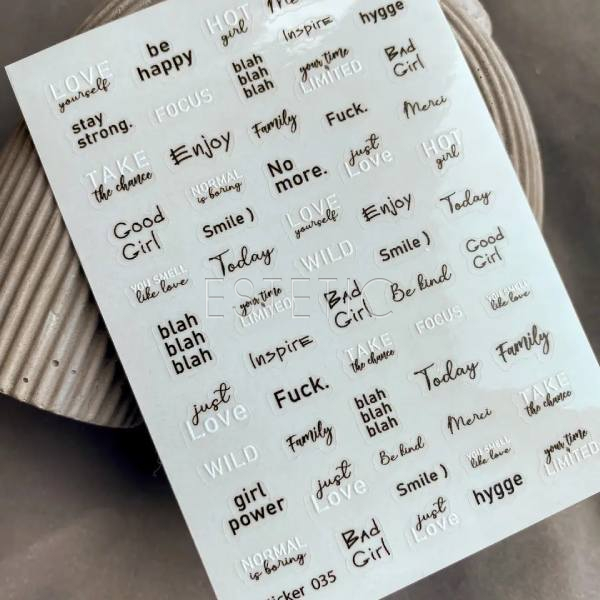 LOVE
yourself
be
happy
HOT
girl
Inspire
hygge
stay
strong.
FOCUS
blah
blah
blah
your time
LIMITED
BAD
Girl
TAKE
the chance
Enjoy
Family
Fuck.
Merci
NORMAL
is boring
No
more.
just
Love
HOT
girl
Good
Girl
Smile )
LOVE
yourself
Enjoy
Today
YOU SMELL
like love
Today
WILD
Smile )
Good
Girl
ESTETIC
blah
blah
blah
your time
LIMITED
BAD
Girl
Be kind
YOU SMELL
like love
Inspire
TAKE
the chance
FOCUS
just
Love
Fuck.
blah
blah
blah
Today
Family
WILD
Family
Be kind
Merci
TAKE
the chance
girl
power
just
Love
Smile )
YOU SMELL
like love
your time
LIMITED
NORMAL
is boring
BAD
Girl
just
Love
hygge
sticker 035